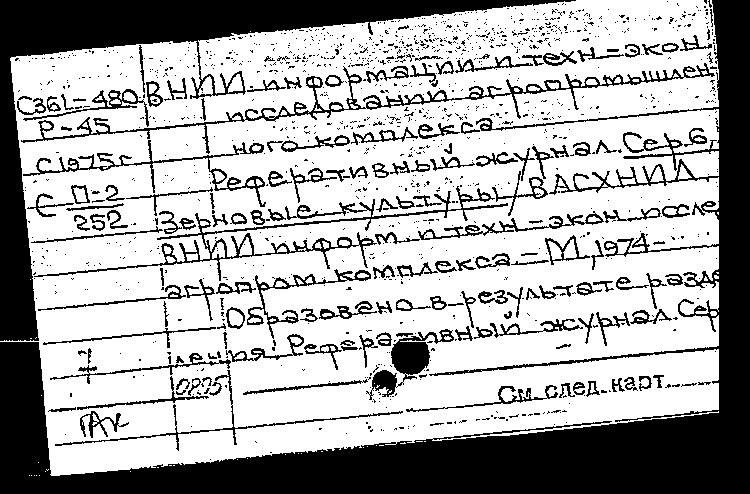 С361-480 ВНИИ информации и техн-экон
Р-45 исследований агропромышлен
ного комплекса.
С 1975 г Реферативный журнал. Сер.6,
С П-2
252 Зерновые культуры / ВАСХНИЛ.
ВНИИ информ. и техн-экон иссле
агропром. комплекса. - М, 1974-
Образовено в результате разде
ления: Реферативный журнал. Сер
7
0895
См. след. карт.